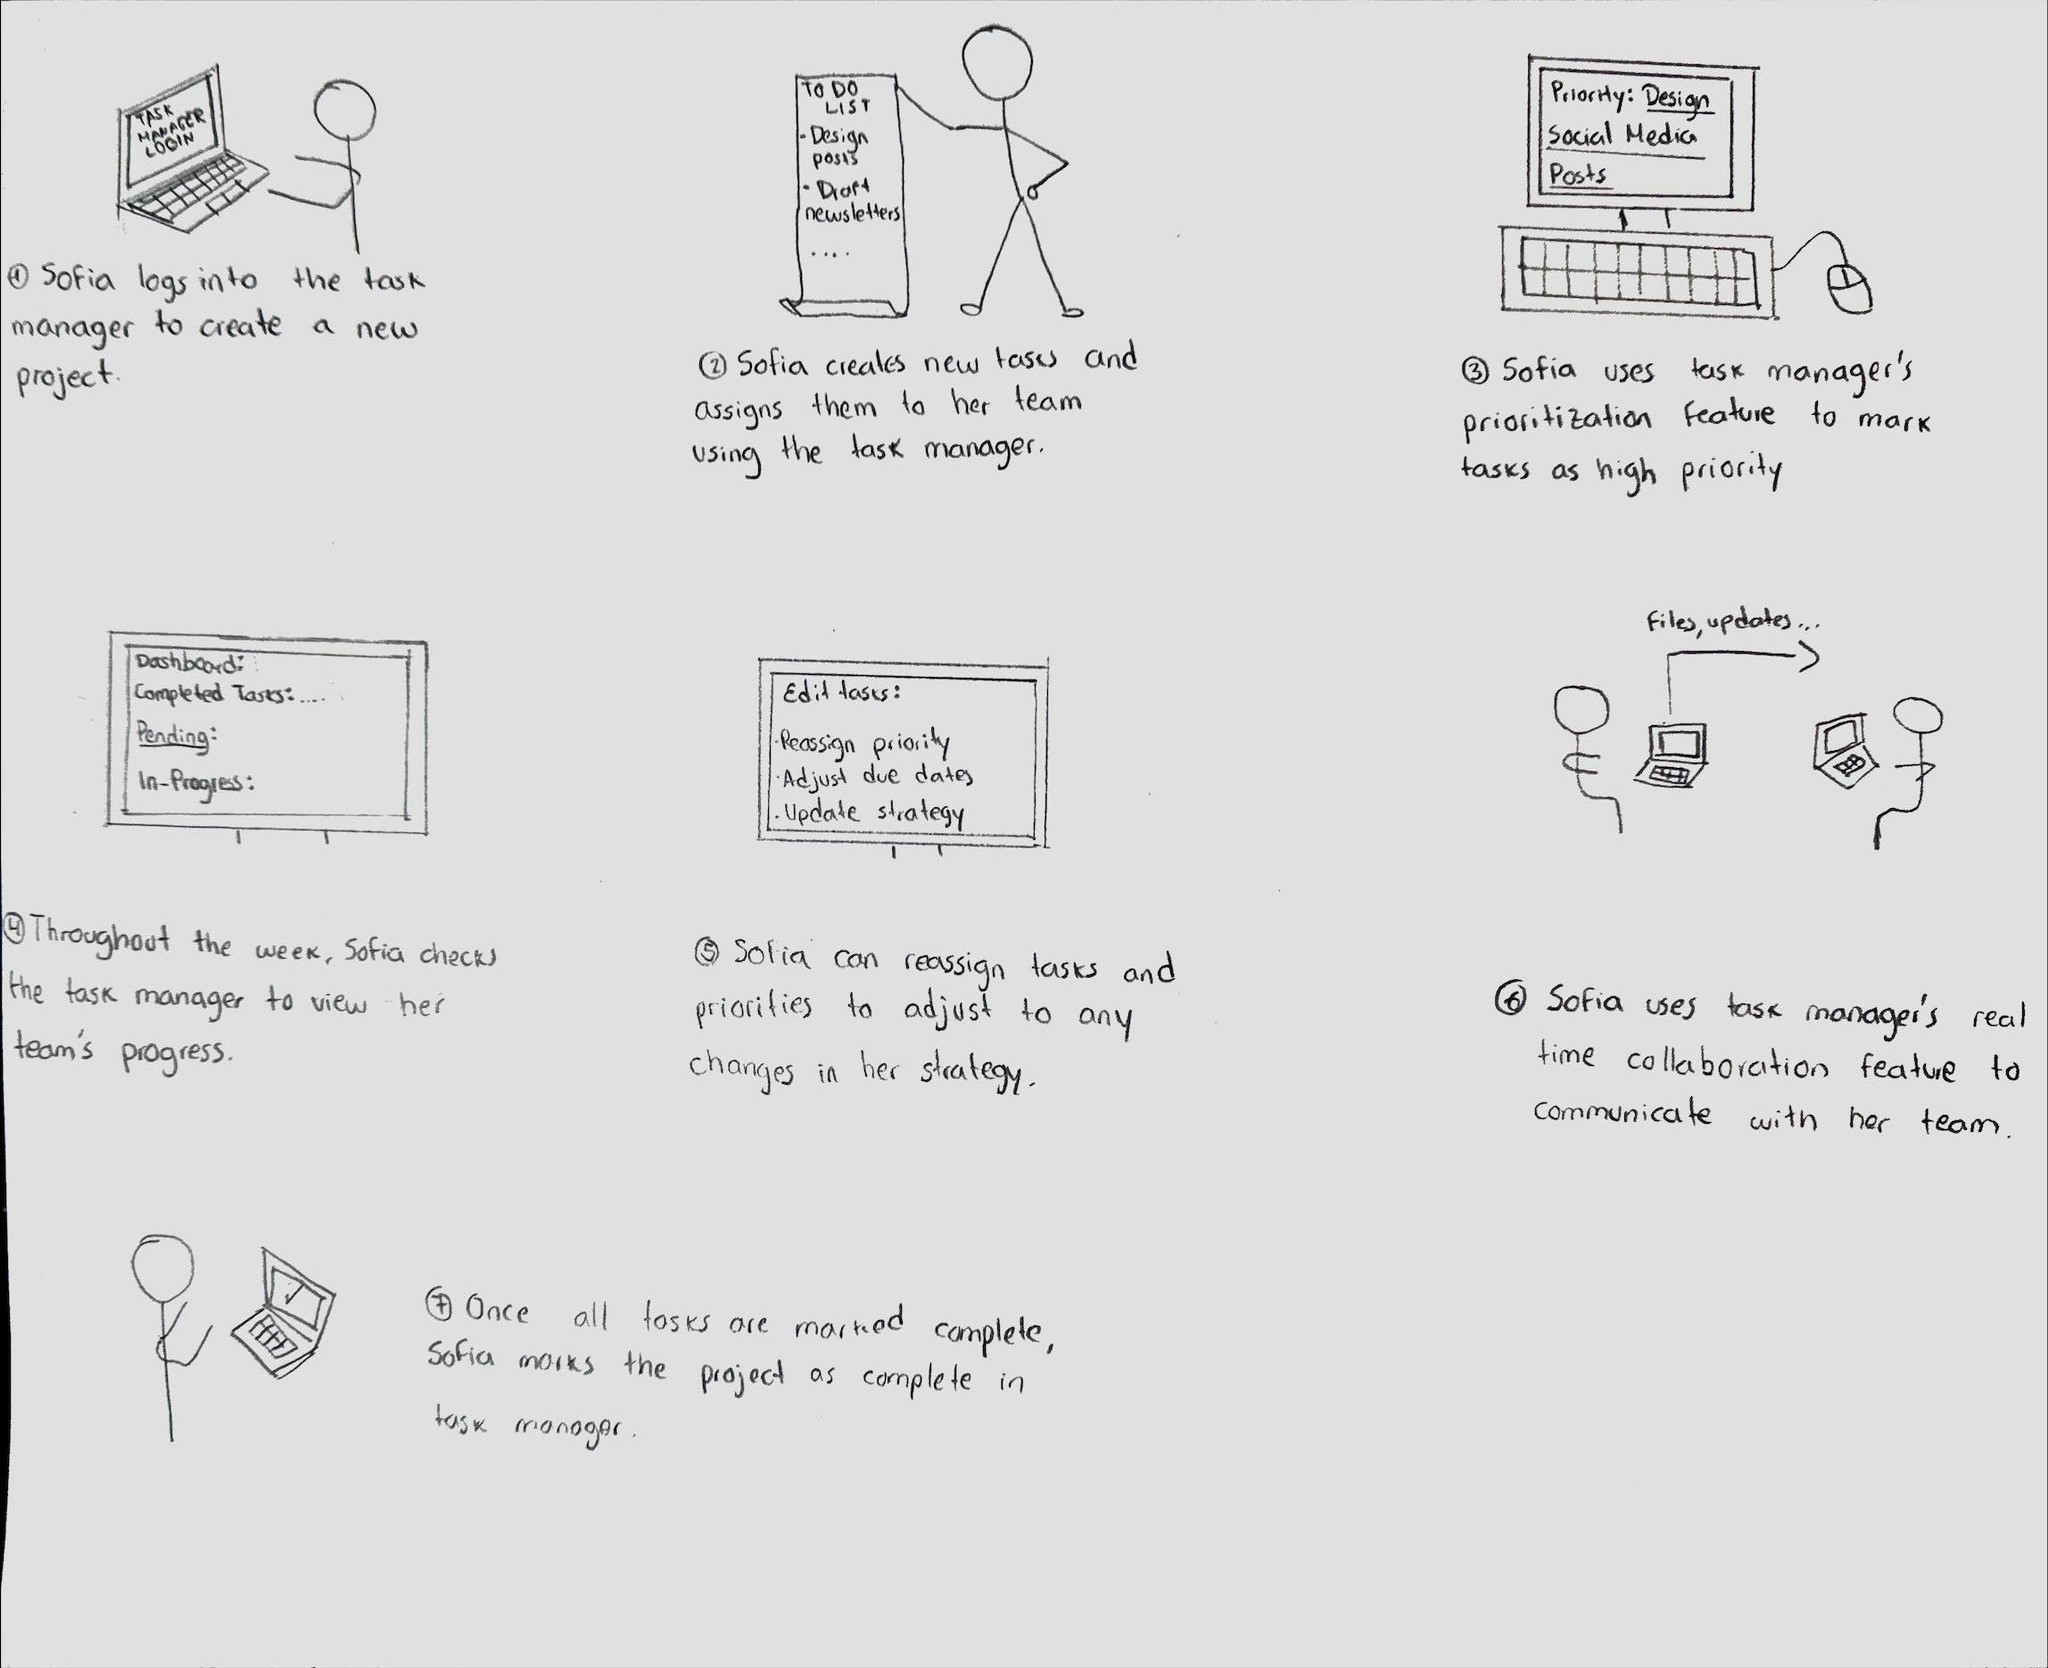 TASK
MANAGER
LOGIN
① Sofia logs into the task
manager to create a new
project.
TO DO
LIST
- Design
posts
• Draft
newsletters
....
② Sofia creates new tasks and
assigns them to her team
using the task manager.
Priority: Design
Social Media
Posts
③ Sofia uses task manager's
prioritization feature to mark
tasks as high priority
Dashboard:
Completed Tasks:....
Pending:
In-Progress:
④ Throughout the week, Sofia checks
the task manager to view her
team's progress.
Edit tasks:
· Reassign priority
· Adjust due dates
· Update strategy
⑤ Sofia can reassign tasks and
priorities to adjust to any
changes in her strategy.
files, updates...
⑥ Sofia uses task manager's real
time collaboration feature to
communicate with her team.
⑦ Once all tasks are marked complete,
Sofia marks the project as complete in
task manager.